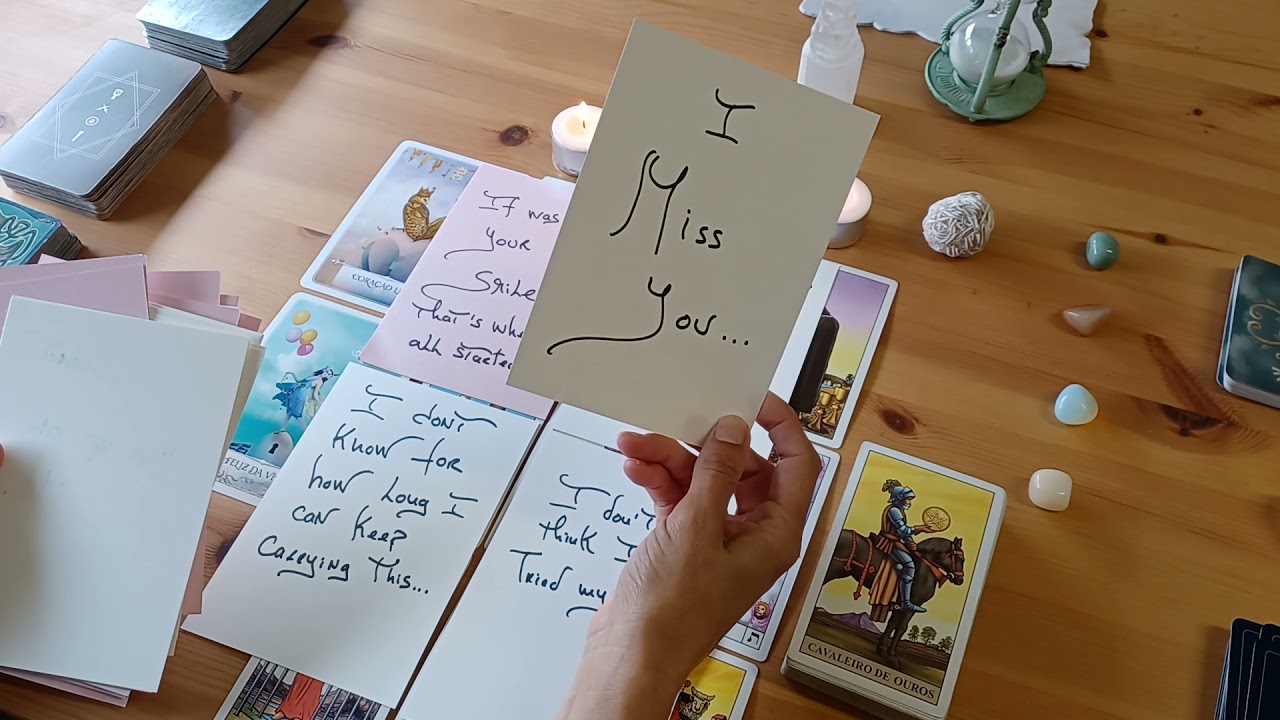 I
Miss
You...
It was
your
Smile
That's
all started
I don't
know for
how long I
can keep
carrying this...
I don't
think I
Tried my
CORAÇÃO
FELIZ DA
CAVALEIRO DE OUROS